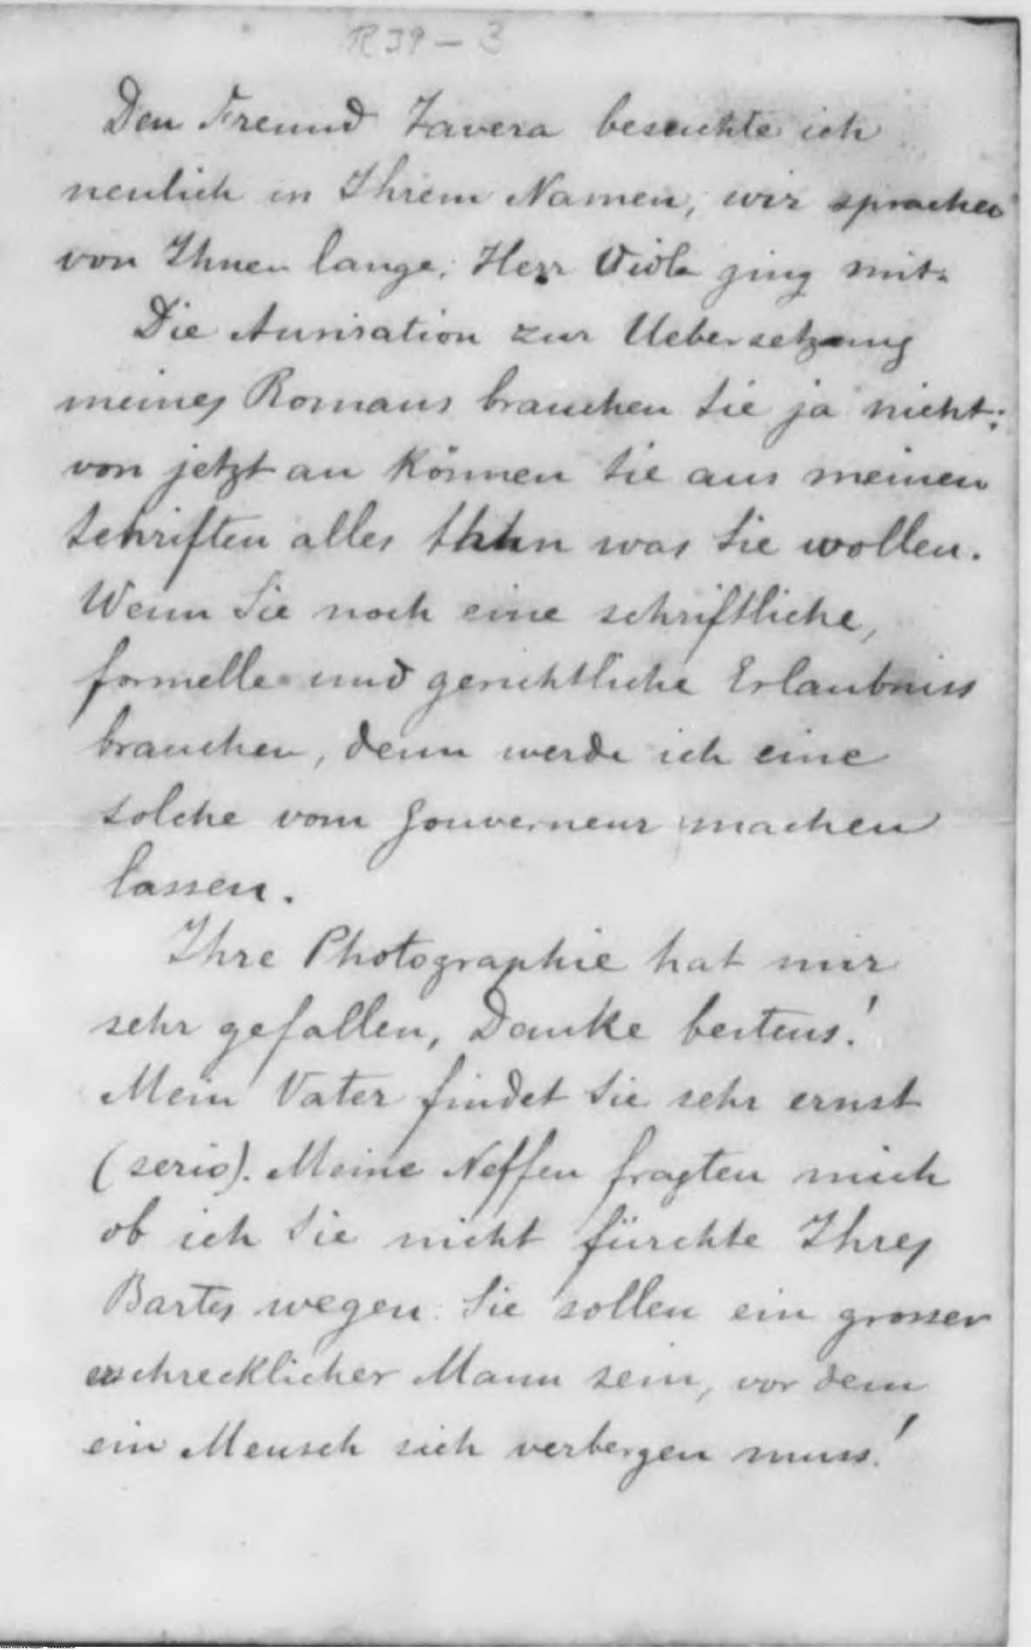 R 39 - 3
Den Freund Tavera besuchte ich
neulich in Ihrem Namen, wir sprachen
von Ihnen lange; Herr Viola ging mit.
Die Aurisation zur Uebersetzung
meines Romans brauchen Sie ja nicht;
von jetzt an können Sie aus meinen
Schriften alles thun was Sie wollen.
Wenn Sie noch eine schriftliche,
formelle und gerichtliche Erlaubniss
brauchen, denn werde ich eine
solche vom Gouverneur machen
lassen.
Ihre Photographie hat mir
sehr gefallen, Danke bestens!
Mein Vater findet Sie sehr ernst
(serio). Meine Neffen fragten mich
ob ich Sie nicht fürchte Ihres
Bartes wegen. Sie sollen ein grosser
erschrecklicher Mann sein, vor dem
ein Mensch sich verbergen muss!